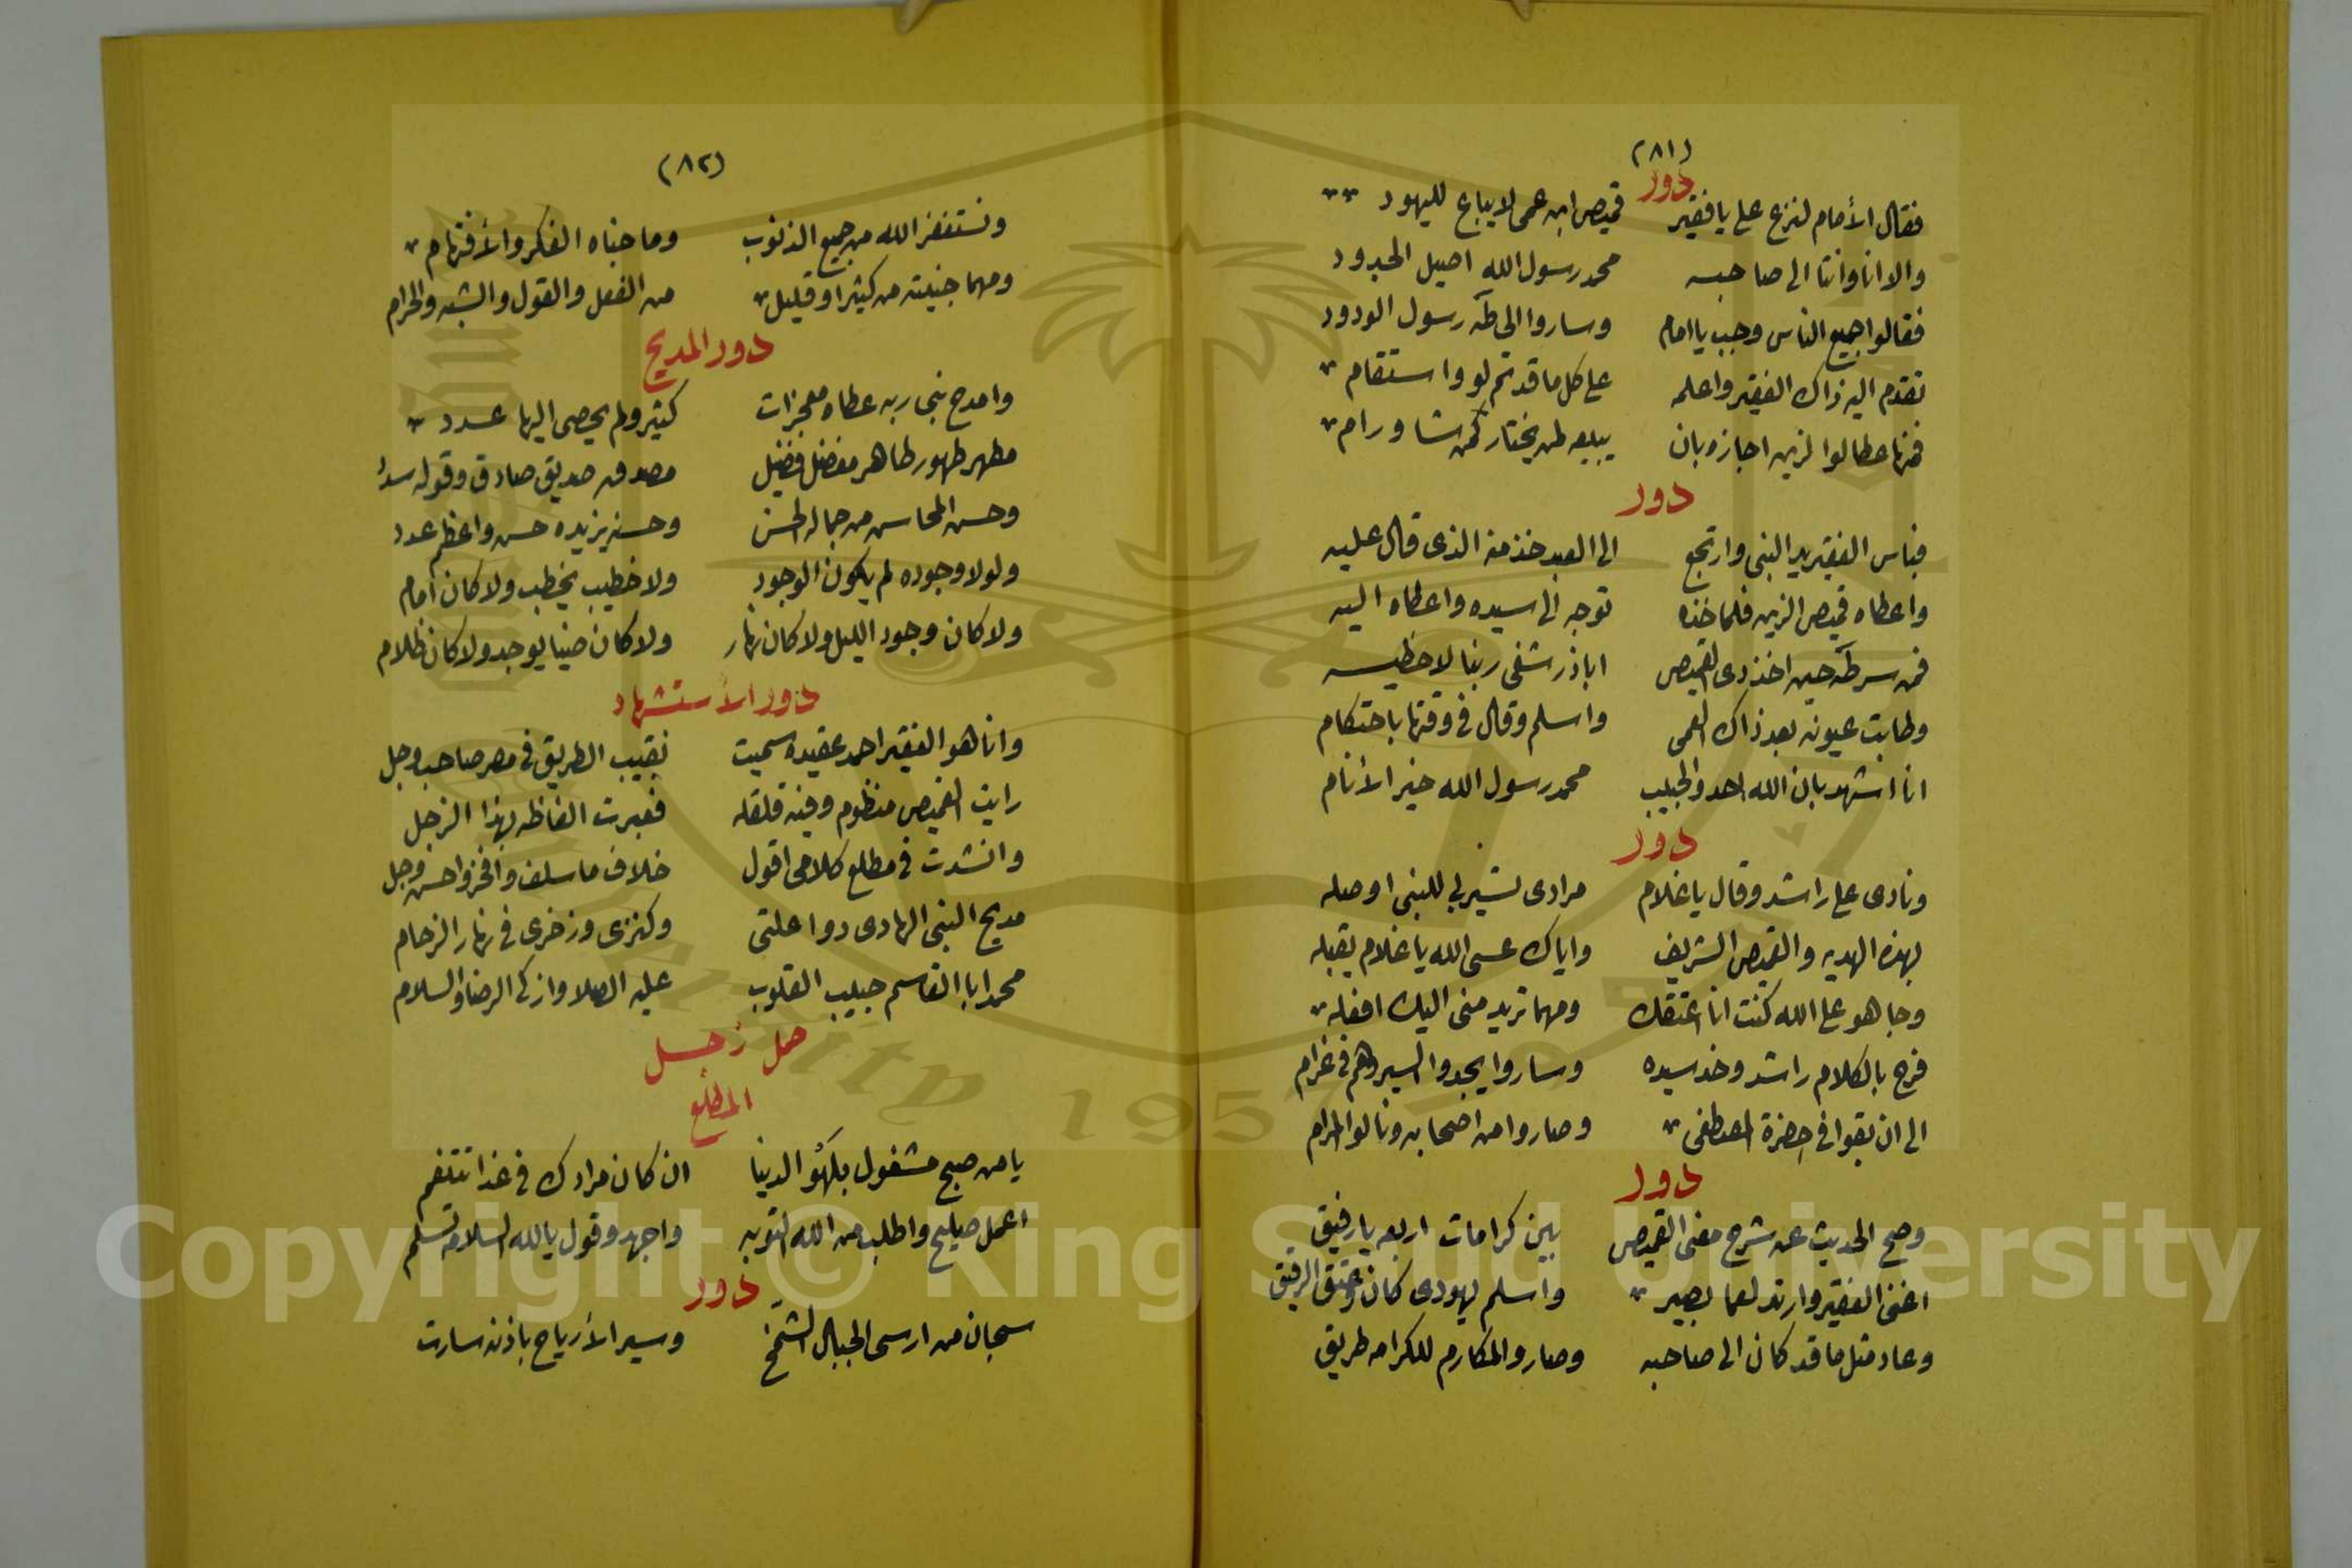 (٨١)
دور
فقال الأمام لنزع على يا فقير قميص ابن عمى لا يباع لليهود
والا انا وانتا الى صاحبه محمد رسول الله اصيل الجدود
فقالوا جميع الناس وجب يا امام وساروا الى طه رسول الودود
تقدم اليه ذاك الفقير واعلمه على كل ما قد تم لو واستقام
اجازه بان يبيعه لمن يختار كمن شا ورام
دور
فباس الفقير يد النبى وارتجع الى العبد خذ منه الذى قال عليه
واعطاه قميص الزين فلما خذه توجه الى سيده واعطاه اليه
فمن سر طه حين اخذ دى القميص اباذر شفى ربنا لاحظيه
وطابت عيونه بعد ذاك العمى واسلم وقال فى وقتها باحتكام
انا اشهد بان الله احد والحبيب محمد رسول الله خير الأنام
دور
ونادى على راشد وقال يا غلام مرادى تسير بى للنبى اوصله
بهذه الهديه والقميص الشريف واياك عسى الله يا غلام يقبله
وجا هو على الله كنت انا اعتقك ومهما تريد منى اليك افعله
فرح بالكلام راشد وخد سيده وساروا يجدوا السير وهم فى غرام
الى ان بقوا فى حضرة المصطفى وصاروا من اصحابه ونالوا المرام
دور
وصح الحديث عن شرح معنى القميص يبين كرامات اربعه يا رفيق
اغنى الفقير وارتد لعما بصير واسلم يهودى كان وعتق الرقيق
وعاد مثل ما قد كان الى صاحبه وصاروا المكارم للكرامه طريق
(٨٢)
ونستغفر الله من جميع الذنوب وما جناه الفكر والأفتهام
ومهما جنيته من كثير او قليل من الفعل والقول والشبه والحرام
دور المديح
وامدح نبى ربه عطاه معجزات كثير ولم يحصى اليها عدد
مطهر طهور طاهر مفضل فضيل مصدق صديق صادق وقوله سدد
وحسن المحاسن من جماله الحسن وحسنه يزيده حسن واعظم عدد
ولولا وجوده لم يكون الوجود ولا خطيب يخطب ولا كان امام
ولا كان وجود الليل ولا كان نهار ولا كان ضيا يوجد ولا كان ظلام
دور الأستشهاد
وانا هو الفقير احمد عقيده سميت نقيب الطريق فى مصر صاحب وجل
رايت القميص منظوم وفيه قلقله فعبرت الفاظه بهذا الزجل
وانشدت فى مطلع كلامى اقول خلاف ما سلف وافخر واحسن وجل
مديح النبى الهادى دوا علتى وكنزى وزخرى فى نهار الزحام
محمد ابا القاسم حبيب القلوب عليه الصلا وازكى الرضا والسلام
حمل زجل
المطلع
يا من صبح مشغول بلهو الدنيا ان كان مرادك فى غدا تتنعم
اعمل صليح واطلب من الله التوبه واجهد وقول يا لله السلامه تسلم
دور
سبحان من ارسى الجبال الشمخ وسير الأرياح باذنه سارت
Copyright © King Saud University
1957